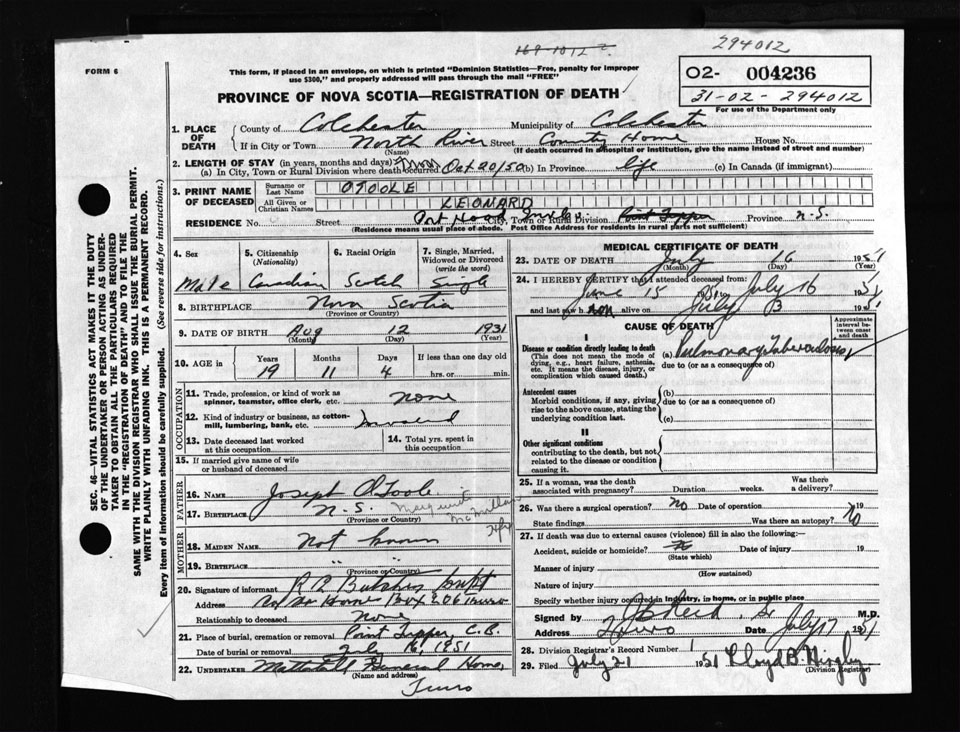 168-1012
294012
FORM 6
This form, if placed in an envelope, on which is printed "Dominion Statistics—Free, penalty for improper
use $300," and properly addressed will pass through the mail "FREE"
PROVINCE OF NOVA SCOTIA—REGISTRATION OF DEATH
02- 004236
31-02-294012
For use of the Department only
1. PLACE OF DEATH { County of Colchester Municipality of Colchester
If in City or Town North River Street County Home House No.
(Name) (If death occurred in a hospital or institution, give the name instead of street and number)
2. LENGTH OF STAY (in years, months and days)
(a) In City, Town or Rural Division where death occurred From Oct 20/50 (b) In Province life (c) In Canada (if immigrant)
3. PRINT NAME OF DECEASED { Surname or Last Name OTOOLE
All Given or Christian Names LEONARD
RESIDENCE No. Street Port Hood City, Town or Rural Division Point Tupper Province N.S.
(Residence means usual place of abode. Post Office Address for residents in rural parts not sufficient)
4. Sex Male
5. Citizenship (Nationality) Canadian
6. Racial Origin Scotch
7. Single, Married, Widowed or Divorced (write the word) Single
8. BIRTHPLACE Nova Scotia
(Province or Country)
9. DATE OF BIRTH Aug 12 1931
(Month) (Day) (Year)
10. AGE in { Years Months Days If less than one day old
19 11 4 hrs. or min.
OCCUPATION
11. Trade, profession, or kind of work as
spinner, teamster, office clerk, etc. none
12. Kind of industry or business, as cotton-
mill, lumbering, bank, etc. Invalid
13. Date deceased last worked
at this occupation
14. Total yrs. spent in
this occupation
15. If married give name of wife
or husband of deceased
FATHER
16. NAME Joseph O'Toole
17. BIRTHPLACE N.S.
(Province or Country)
Marguerite McMillan
MOTHER
18. MAIDEN NAME Not known
19. BIRTHPLACE "
(Province or Country)
20. Signature of informant R B Supt
Address Co Home Box 206 Truro
Relationship to deceased None
21. Place of burial, cremation or removal Point Tupper, C.B.
Date of burial or removal July 16, 1951
22. UNDERTAKER Mattatall Funeral Home,
(Name and address)
Truro
MEDICAL CERTIFICATE OF DEATH
23. DATE OF DEATH July 16 1951
(Month) (Day) (Year)
24. I HEREBY CERTIFY that I attended deceased from:
June 15 1951 to July 16 1951
and last saw him alive on July 13 1951
CAUSE OF DEATH
Approximate interval between onset and death
I
Disease or condition directly leading to death
(This does not mean the mode of
dying, e.g., heart failure, asthenia,
etc. It means the disease, injury, or
complication which caused death.)
(a) Pulmonary Tuberculosis
due to (or as a consequence of)
Antecedent causes
Morbid conditions, if any, giving
rise to the above cause, stating the
underlying condition last.
(b)
due to (or as a consequence of)
(c)
II
Other significant conditions
contributing to the death, but not
related to the disease or condition
causing it.
25. If a woman, was the death
associated with pregnancy? Duration weeks. Was there
a delivery?
26. Was there a surgical operation? No Date of operation 19
State findings Was there an autopsy? No
27. If death was due to external causes (violence) fill in also the following:—
Accident, suicide or homicide? No Date of injury 19
(State which)
Manner of injury
(How sustained)
Nature of injury
Specify whether injury occurred in industry, in home, or in public place
Signed by Reid, Sr M.D.
Address Truro Date July 17 1951
28. Division Registrar's Record Number 1
29. Filed July 21 1951 Lloyd B.
(Division Registrar)
SEC. 46—VITAL STATISTICS ACT MAKES IT THE DUTY
OF THE UNDERTAKER OR PERSON ACTING AS UNDER-
TAKER TO OBTAIN ALL THE PARTICULARS REQUIRED
IN THE "REGISTRATION OF DEATH" AND TO FILE THE
SAME WITH THE DIVISION REGISTRAR WHO SHALL ISSUE THE BURIAL PERMIT.
WRITE PLAINLY WITH UNFADING INK. THIS IS A PERMANENT RECORD.
Every item of information should be carefully supplied. (See reverse side for instructions.)